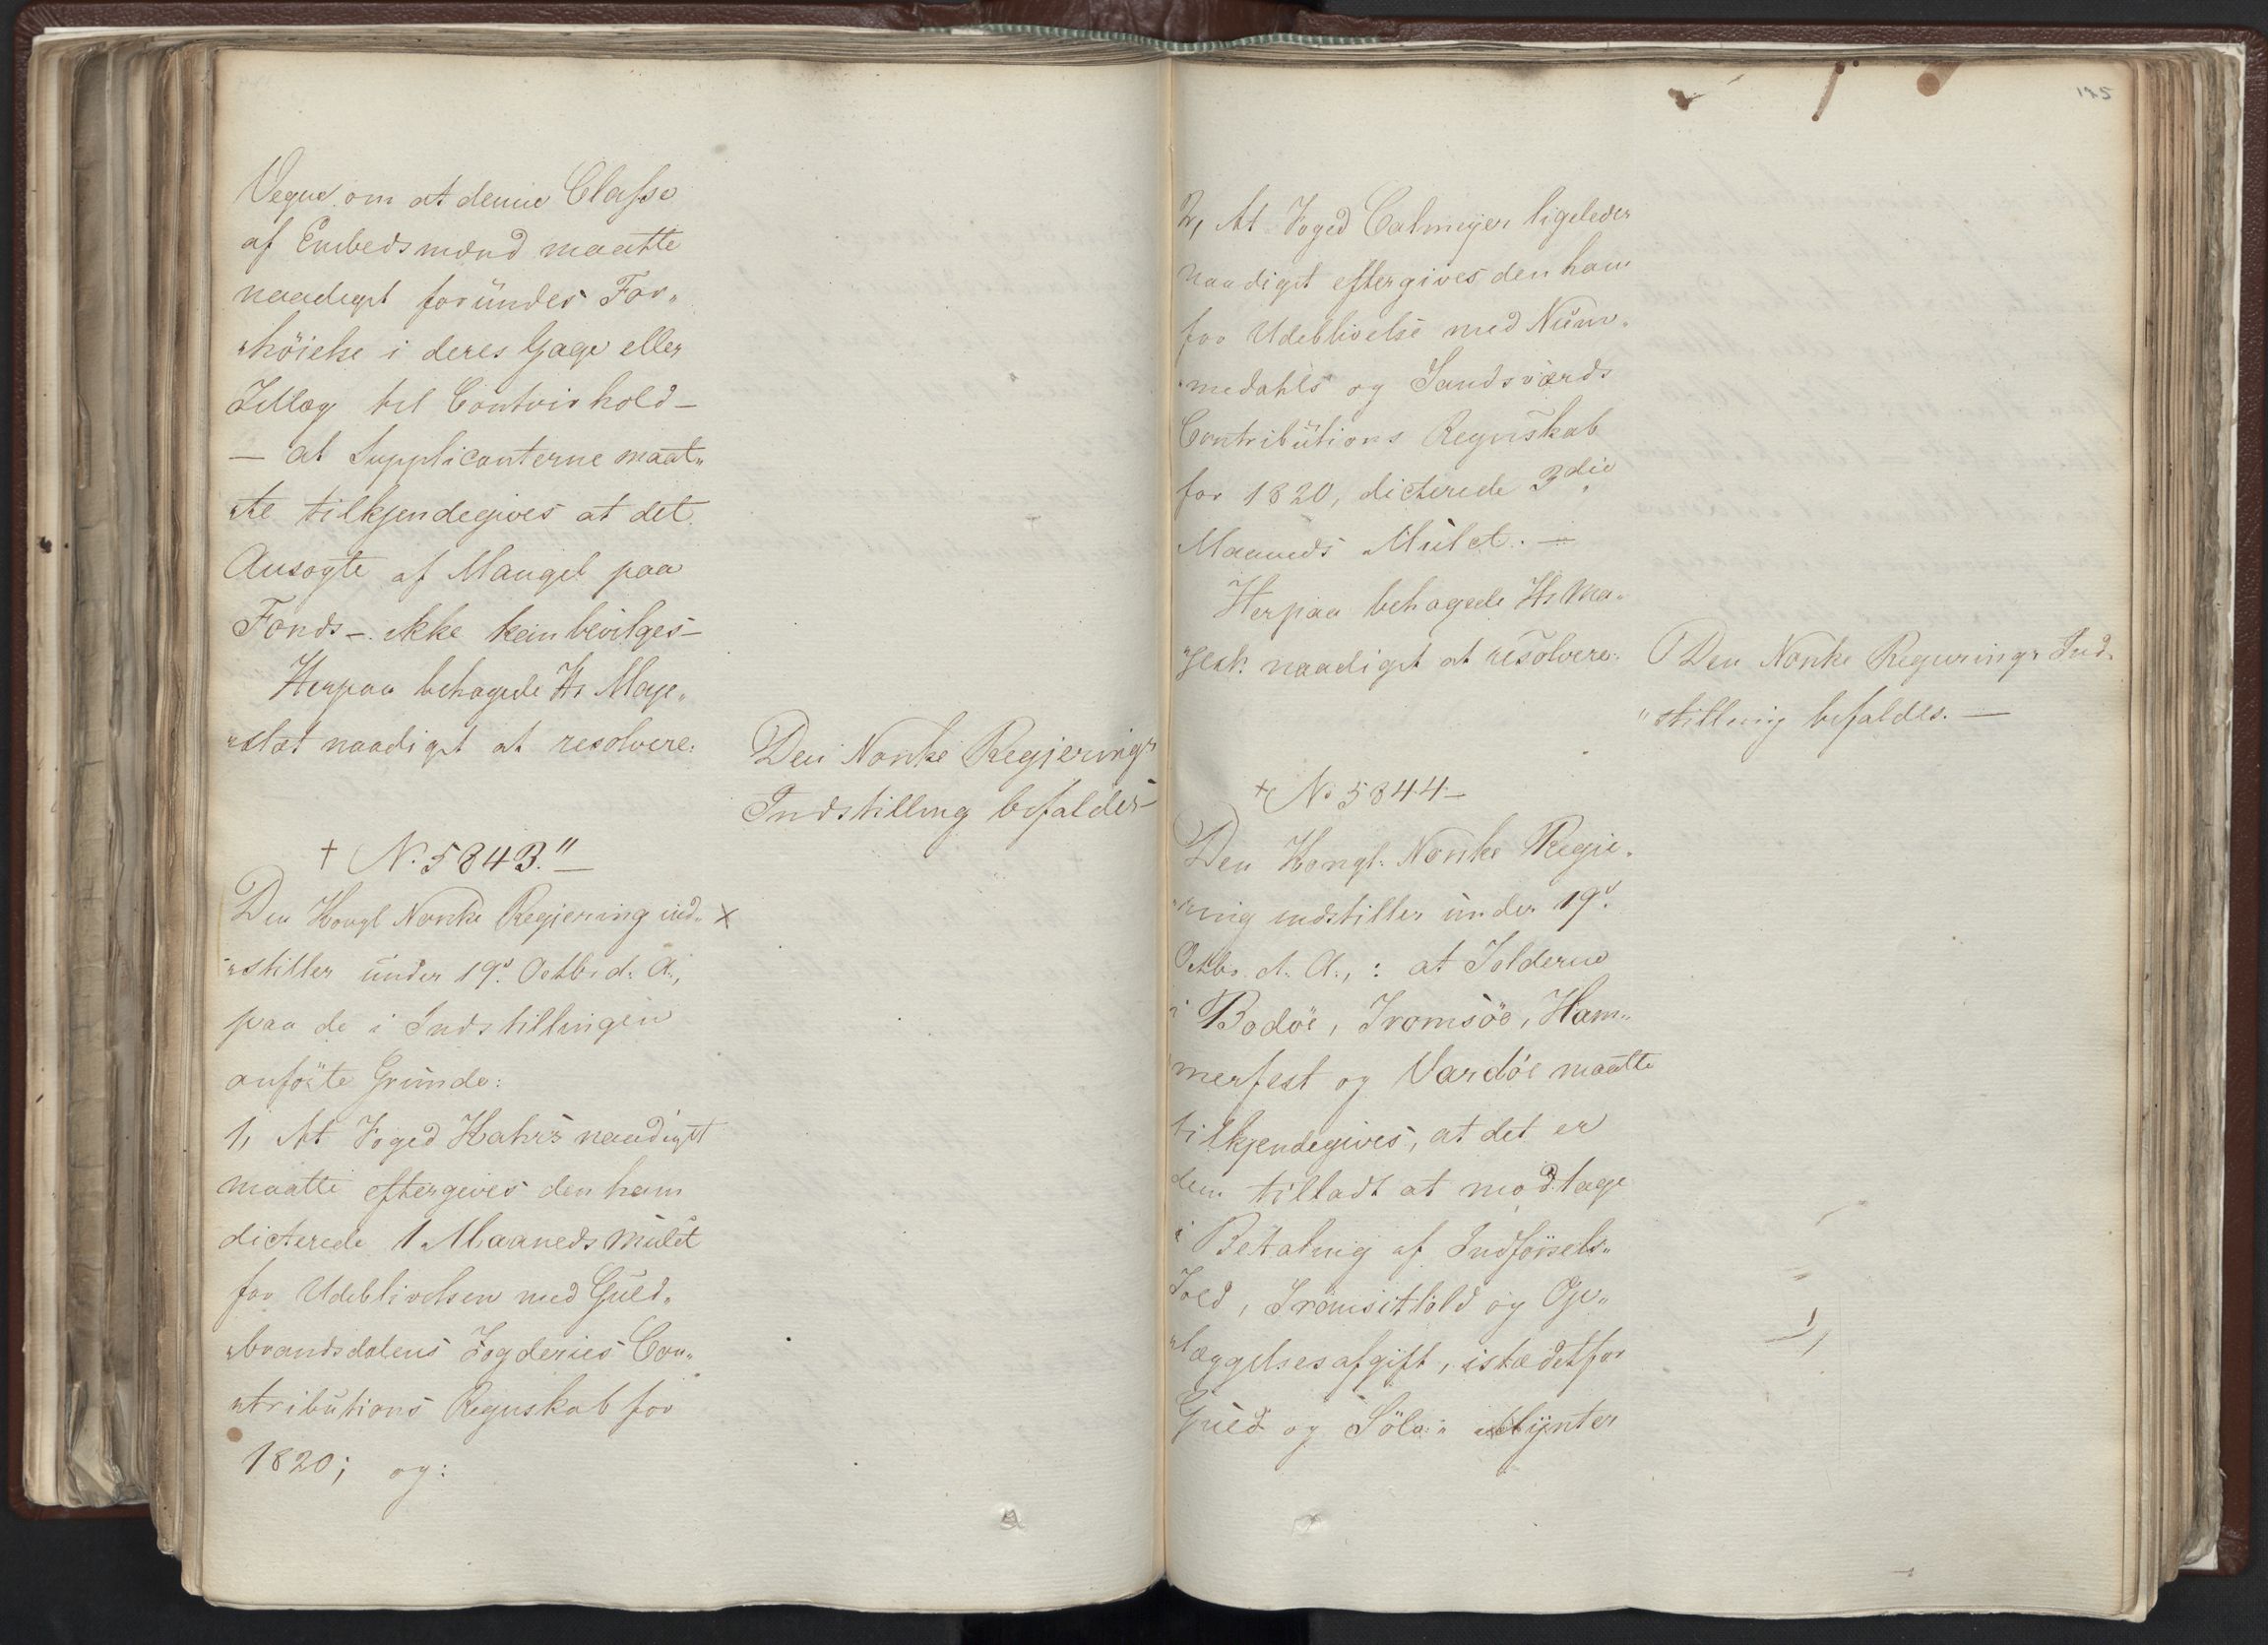 Vegne om at denne Classe
af Embedsmænd maatte
naadigst forundes For„
„höielse i deres Gage eller
Tillæg til Contoirhold –
– at Supplicanterne maat„
„te tilkjendegives at det
Ansøgte af Mangel paa
Fonds – ikke kan bevilges –
Herpaa behagede Hs Maje„
„stæt naadigst at resolvere:
Den Norske Regjerings
Indstilling bifaldes –
+ No 5843." –
Den Kongl Norske Regjering ind„ x
„stiller under 19d. Octbr d. A.,
paa de i Indstillingen
anförte Grunde:
1, At Foged Hahrs naadigst
maatte eftergives den ham
dicterede 1 Maaneds Mulct
for Udeblivelsen med Guld„
„brandsdalens Fogderies Con„
„tributions Regnskab for
1820; og:
175
2, At Foged Calmeijer ligeledes
naadigst eftergives den ham
for Udeblivelse med Num„
„medahls og Sandsværds
Contributions Regnskab
for 1820, dicterede 3die
Maaneds Mulct. –
Herpaa behagede Hs Ma„
„jest: naadigst at resolvere:
Den Norske Regjerings Ind„
„stilling bifaldes. –
+ No 5844 –
Den Kongl: Norske Regje„
„ring indstiller under 19d.
Octbr. d. A., : at Tolderne
i Bodöe, Tromsöe, Ham„
merfest og Vardöe maatte
tilkjendegives, at det er
dem tilladt at modtage
i Betaling af Indförsels„
Told, Transittold og Op„
„læggelsesafgift, istædetfor
Guld og Sölv „ Mÿnter